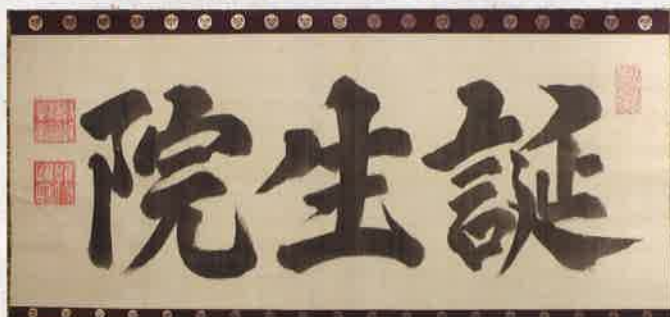 誕生院